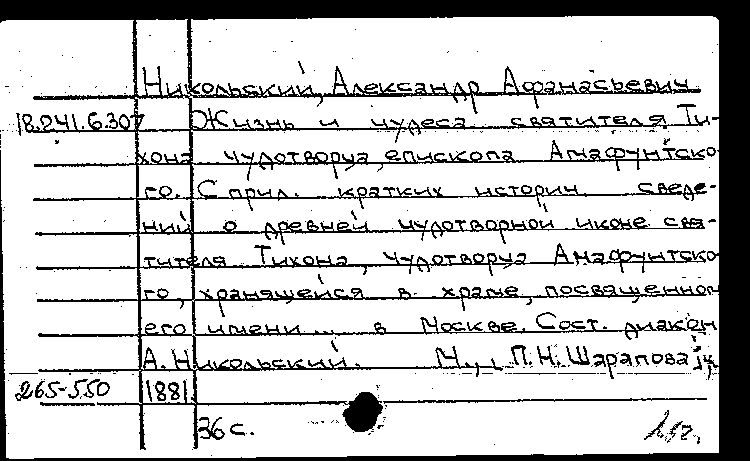 Никольский, Александр Афанасьевич
18.241.6.307 Жизнь и чудеса святителя Ти-
хона чудотворца, епископа Амафунтско
го. С прил. кратких историч. сведе-
ний о древней чудотворной иконе свя-
тителя Тихона, чудотворца Амафунтско
го, хранящейся в храме, посвященном
его имени... в Москве. Сост. диакон
А. Никольский. М., П.Н. Шарапова
265-550 1881.
36 с.